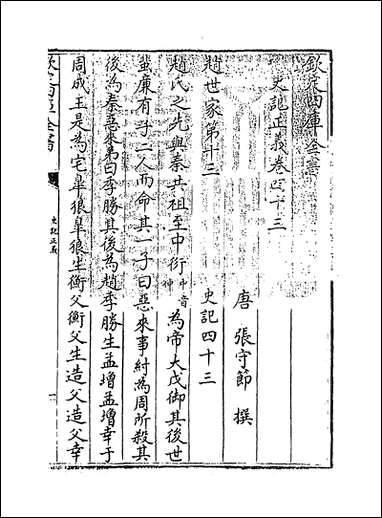 欽定四庫全書
史記正義卷四十三
唐 張守節 撰
趙世家第十三
史記四十三
趙氏之先與秦共祖至中衍中音仲為帝大戊御其後世
蜚廉有子二人而命其一子曰惡來事紂為周所殺其
後為秦惡來弟曰季勝其後為趙季勝生孟增孟增幸于
周成王是為宅皐狼皐狼生衡父衡父生造父造父幸
欽定四庫全書
史記正義
一